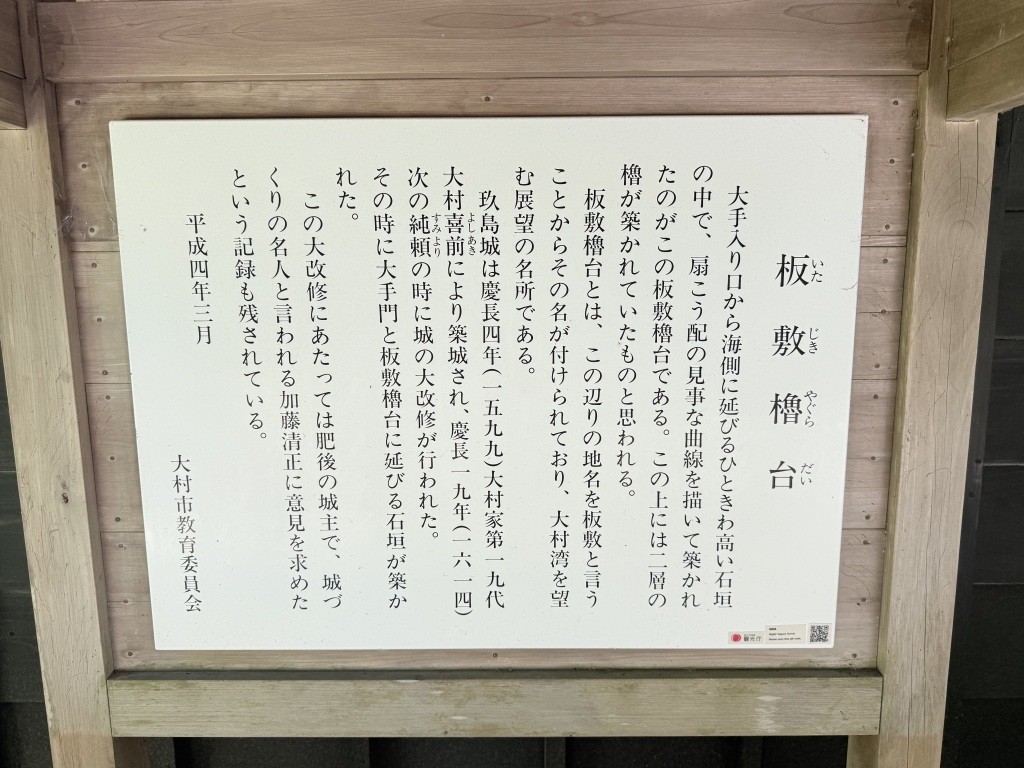 板敷櫓台
いた じき やぐら だい
大手入り口から海側に延びるひときわ高い石垣
の中で、扇こう配の見事な曲線を描いて築かれ
たのがこの板敷櫓台である。この上には二層の
櫓が築かれていたものと思われる。
板敷櫓台とは、この辺りの地名を板敷と言う
ことからその名が付けられており、大村湾を望
む展望の名所である。
玖島城は慶長四年(一五九九)大村家第一九代
大村喜前により築城され、慶長一九年(一六一四)
よしあき
次の純頼の時に城の大改修が行われた。
すみより
その時に大手門と板敷櫓台に延びる石垣が築か
れた。
この大改修にあたっては肥後の城主で、城づ
くりの名人と言われる加藤清正に意見を求めた
という記録も残されている。
平成四年三月
大村市教育委員会
観光庁